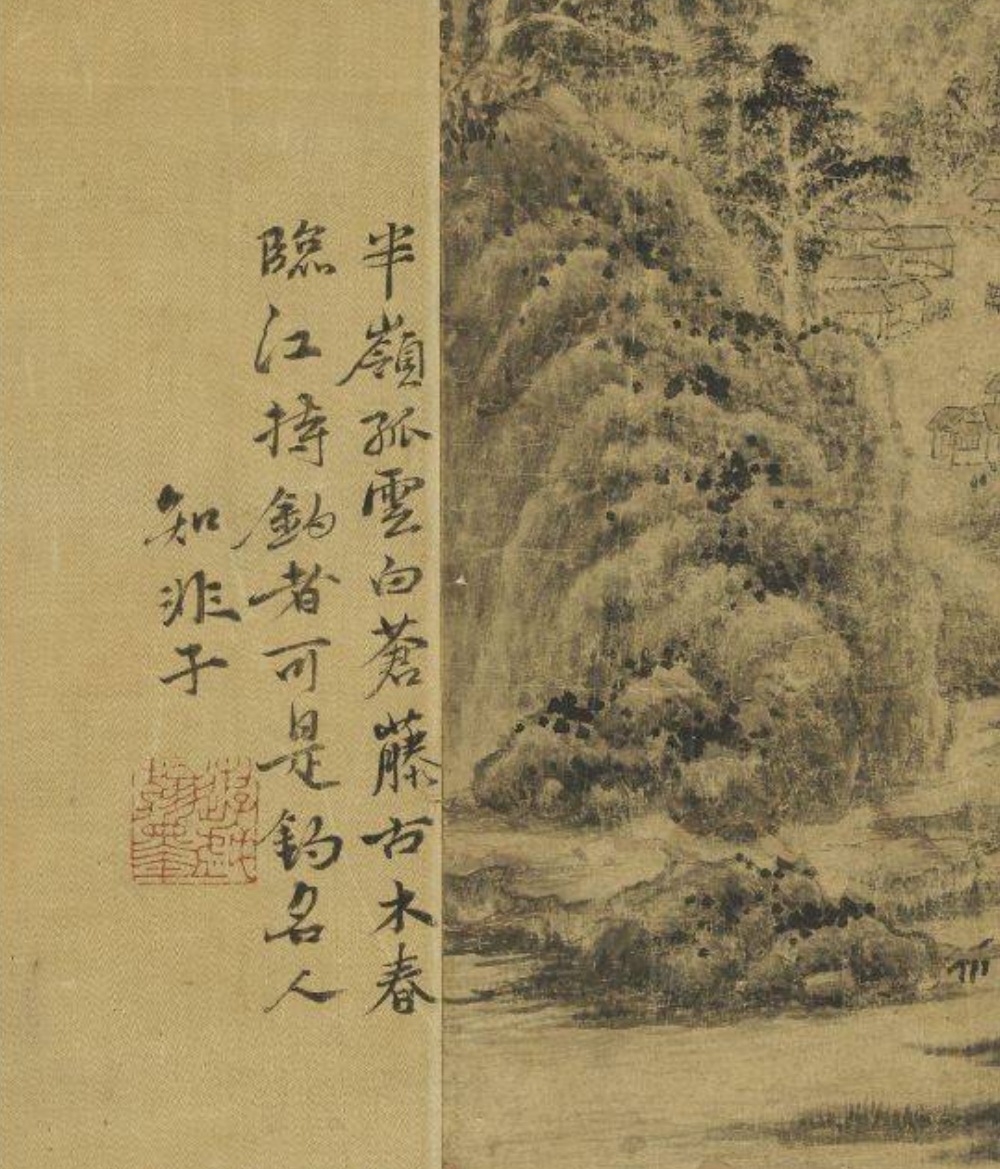 半嶺孤雲白蒼藤古木春
臨江持釣者可是釣名人
知非子